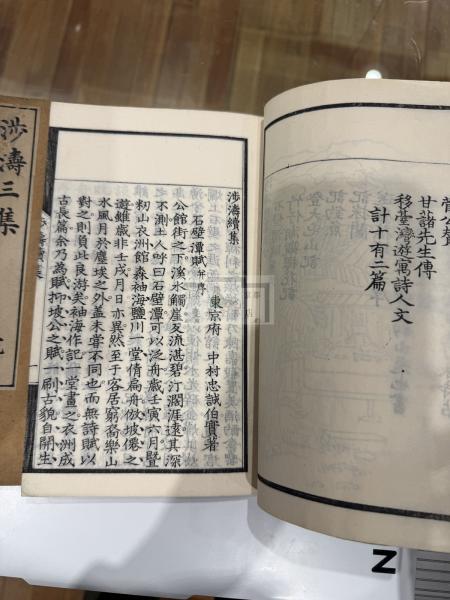 菅公贊
甘藷先生傳
移臺灣遊寓詩人文
計十有二篇
涉濤續集
石壁潭賦并序
東京府 中村忠誠伯實著
公館街之下溪水觸崖爻流湛碧汀濶涯遠其深
不測土人呼曰石壁潭可以泛舟歲壬寅六月曁
籾山衣洲館森袖海鹽川一堂倩扁舟倣坡僊之
遊雖歲非壬戌月日亦異然至于客居窮裔樂山
水風月於塵埃之外蓋未嘗不同也而無詩賦以
對之則負此良游矣袖海作記一堂畫之衣洲成
古長篇余乃為賦抑坡公之賦一刷古貌自開生
涉濤三集
N